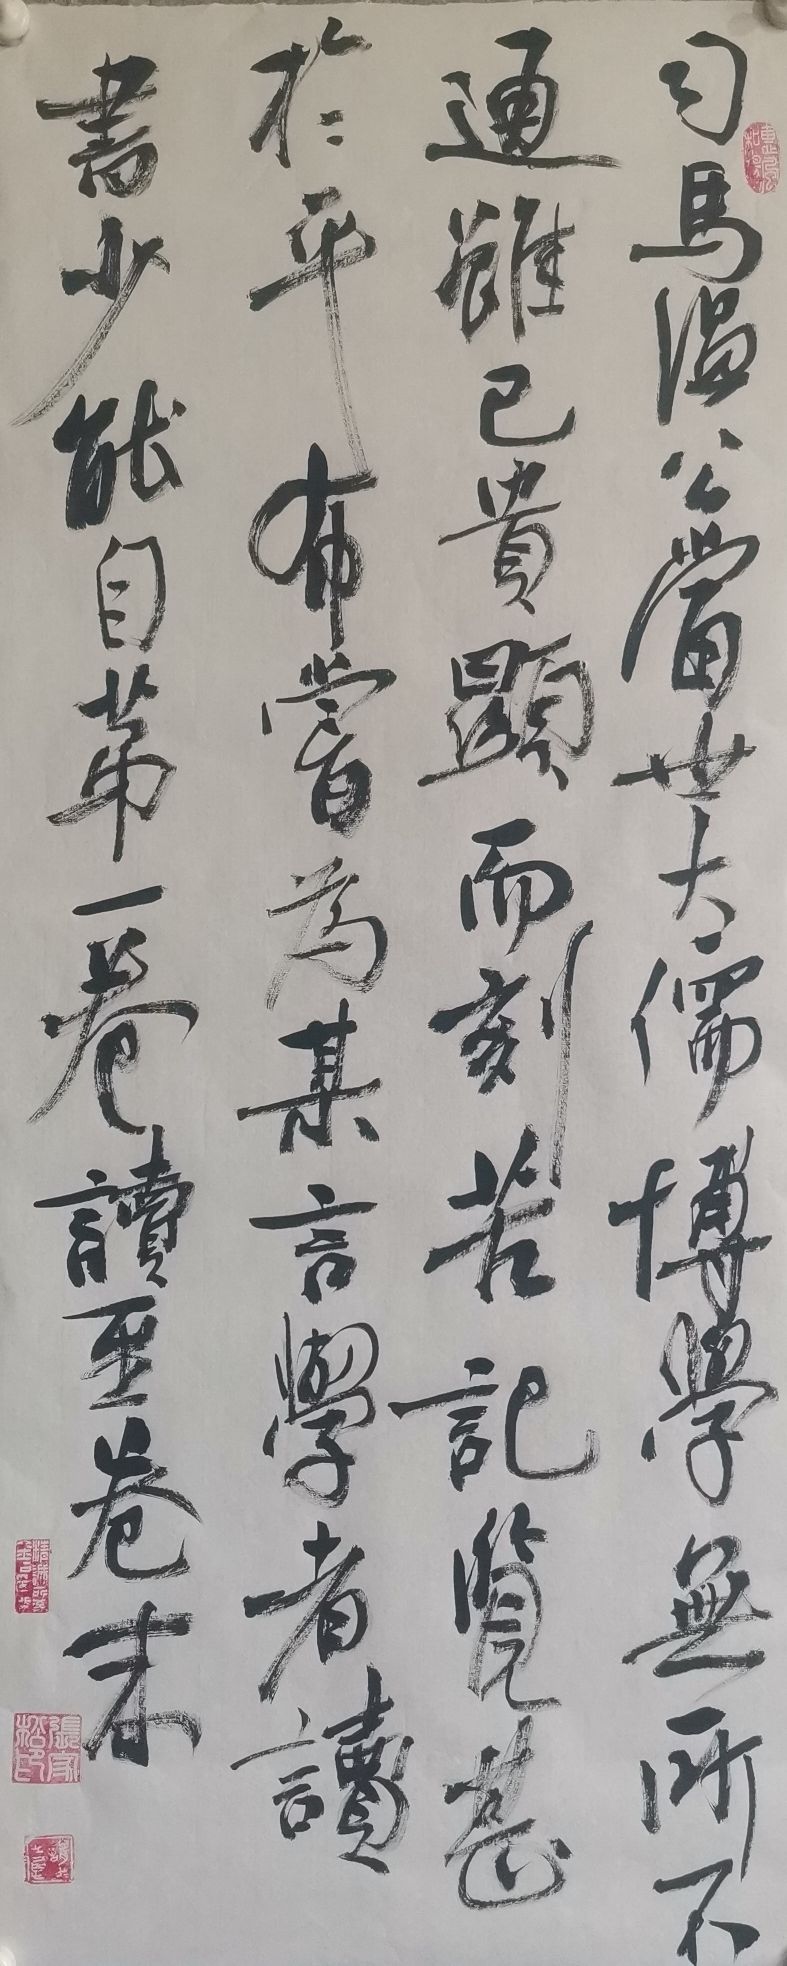 司馬溫公當世大儒博學無所不
通雖已貴顯而刻苦記覽甚
於平布嘗為某言學者讀
書少能自第一卷讀至卷末
張家松印